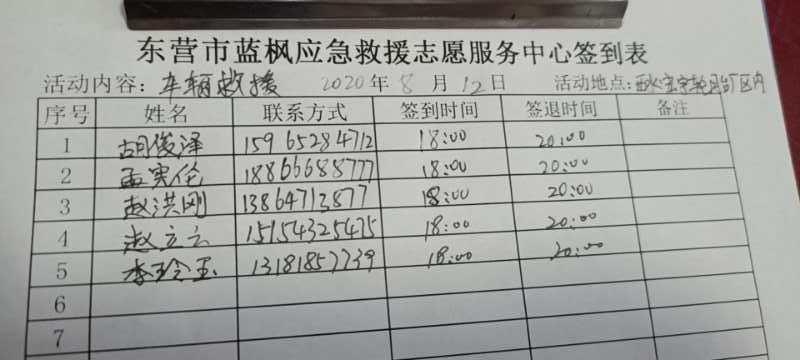 东营市蓝枫应急救援志愿服务中心签到表
活动内容：车辆救援 2020年8月12日 活动地点：区内
序号 姓名 联系方式 签到时间 签退时间 备注
1 胡俊泽 15965284712 18:00 20:00
2 孟宪伦 18866688777 18:00 20:00
3 赵洪刚 13864713877 18:00 20:00
4 赵立云 15154325475 18:00 20:00
5 李玲玉 13181857739 18:00 20:00
6
7